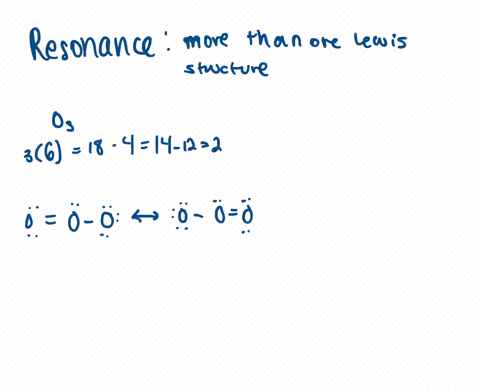 Resonance: more than one lewis
structure
O₃
3(6) = 18 - 4 = 14 - 12 = 2
Ö = Ö - Ö: ↔ :Ö - Ö = Ö